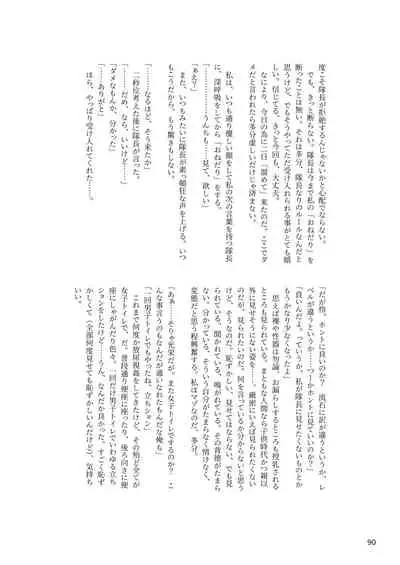 度こそ隊長が拒絶するんじゃないかと心配でならない。
でも、きっと断らない。隊長は今まで私の「おねだり」を
断ったことは無い。それは多分、隊長なりのルールなんだと
思うけど、でもそうやってただ受け入れられる事がとても嬉
しい。信じてる。きっと今回も、大丈夫。
なにより、今日の為に二日「溜めて」来たのだ。ここでダ
メだと言われたら多分虚しいだけじゃ済まない。
私は、いつも通り優しい顔をして私の次の言葉を待つ隊長
に、深呼吸をしてから「おねだり」をする。
「………うんちも……見て、欲しい」
「ぁえ？」
また、いつもみたいに隊長が素っ頓狂な声を上げる。いつ
もこうだから、もう驚きもしない。
「………」
「………なるほど、そう来たか」
二秒位考えた後に隊長が言った。
「………だめ、なら、いいけど……」
「ダメなもんか。分かった」
「………ありがと」
ほら、やっぱり受け入れてくれた……。
「だが悟。ホントに良いのか？　流石に訳が違うというか、レ
ベルが違うというか……つーかホントに見ていいのか？」
「良いんだよ。っていうか、私が隊長に見せたくないものとか
もうかなり少なくなったよ」
思えば裸や性器は勿論、お漏らしするところも授乳される
ところも見られている。まともな人間なら子供時代かつ親以
外に見せそうにない姿を……厳密にいえば見られたくない
のだが、見られたいのだ。何を言っているか分からないと思う
けど、そうなのだ。恥ずかしい、見せてはならない、でも見
られている。聞かれている。嗅がれている。その背徳がたまら
ない。分かっている、そういう自分がたまらなく情けなく、
変態だと思う程興奮する。私はマゾなのだ。多分。
「ああ……そりゃ光栄だが、また女子トイレでするのか？　こ
んな事言うのもなんだが通い慣れたもんだな俺も」
「一回男子トイレでもやったね、立ちション」
これまで何度か放尿視姦をしてきたけど、その殆ど全てが
女子トイレで、だ。普段通り便座に座ったり、後ろ向きに便
座にしゃがんだり色々。一回だけ男子トイレでいわゆる立ち
ションをしたけど……うん、なんだか良かった。すごく恥ず
かしくて（全部何度見せても恥ずかしいんだけど）、気持ち
いい。
90